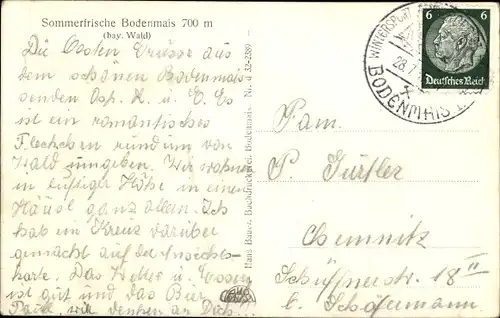 Sommerfrische Bodenmais 700 m
(bay. Wald)
Die besten Grüsse aus
dem schönen Bodenmais
senden Osk. K. u. E. Es
ist ein romantisches
Fleckchen rund um von
Wald umgeben. Wir wohnen
in luftiger Höhe in einem
Häusl ganz allein. Ich
hab ein Kreuz darüber
gemacht auf der Ansichts-
karte. Das Wetter u. Essen
ist gut und das Bier
wir denken an Dich...
Hans Bauer, Buchdruckerei, Bodenmais. Nr. d 32-2289
WINTERSPORT
28.7
BODENMAIS
6 6
Deutsches Reich
Fam.
P. Gürtler
Chemnitz
Schüffnerstr. 18 II
b. Schösermann